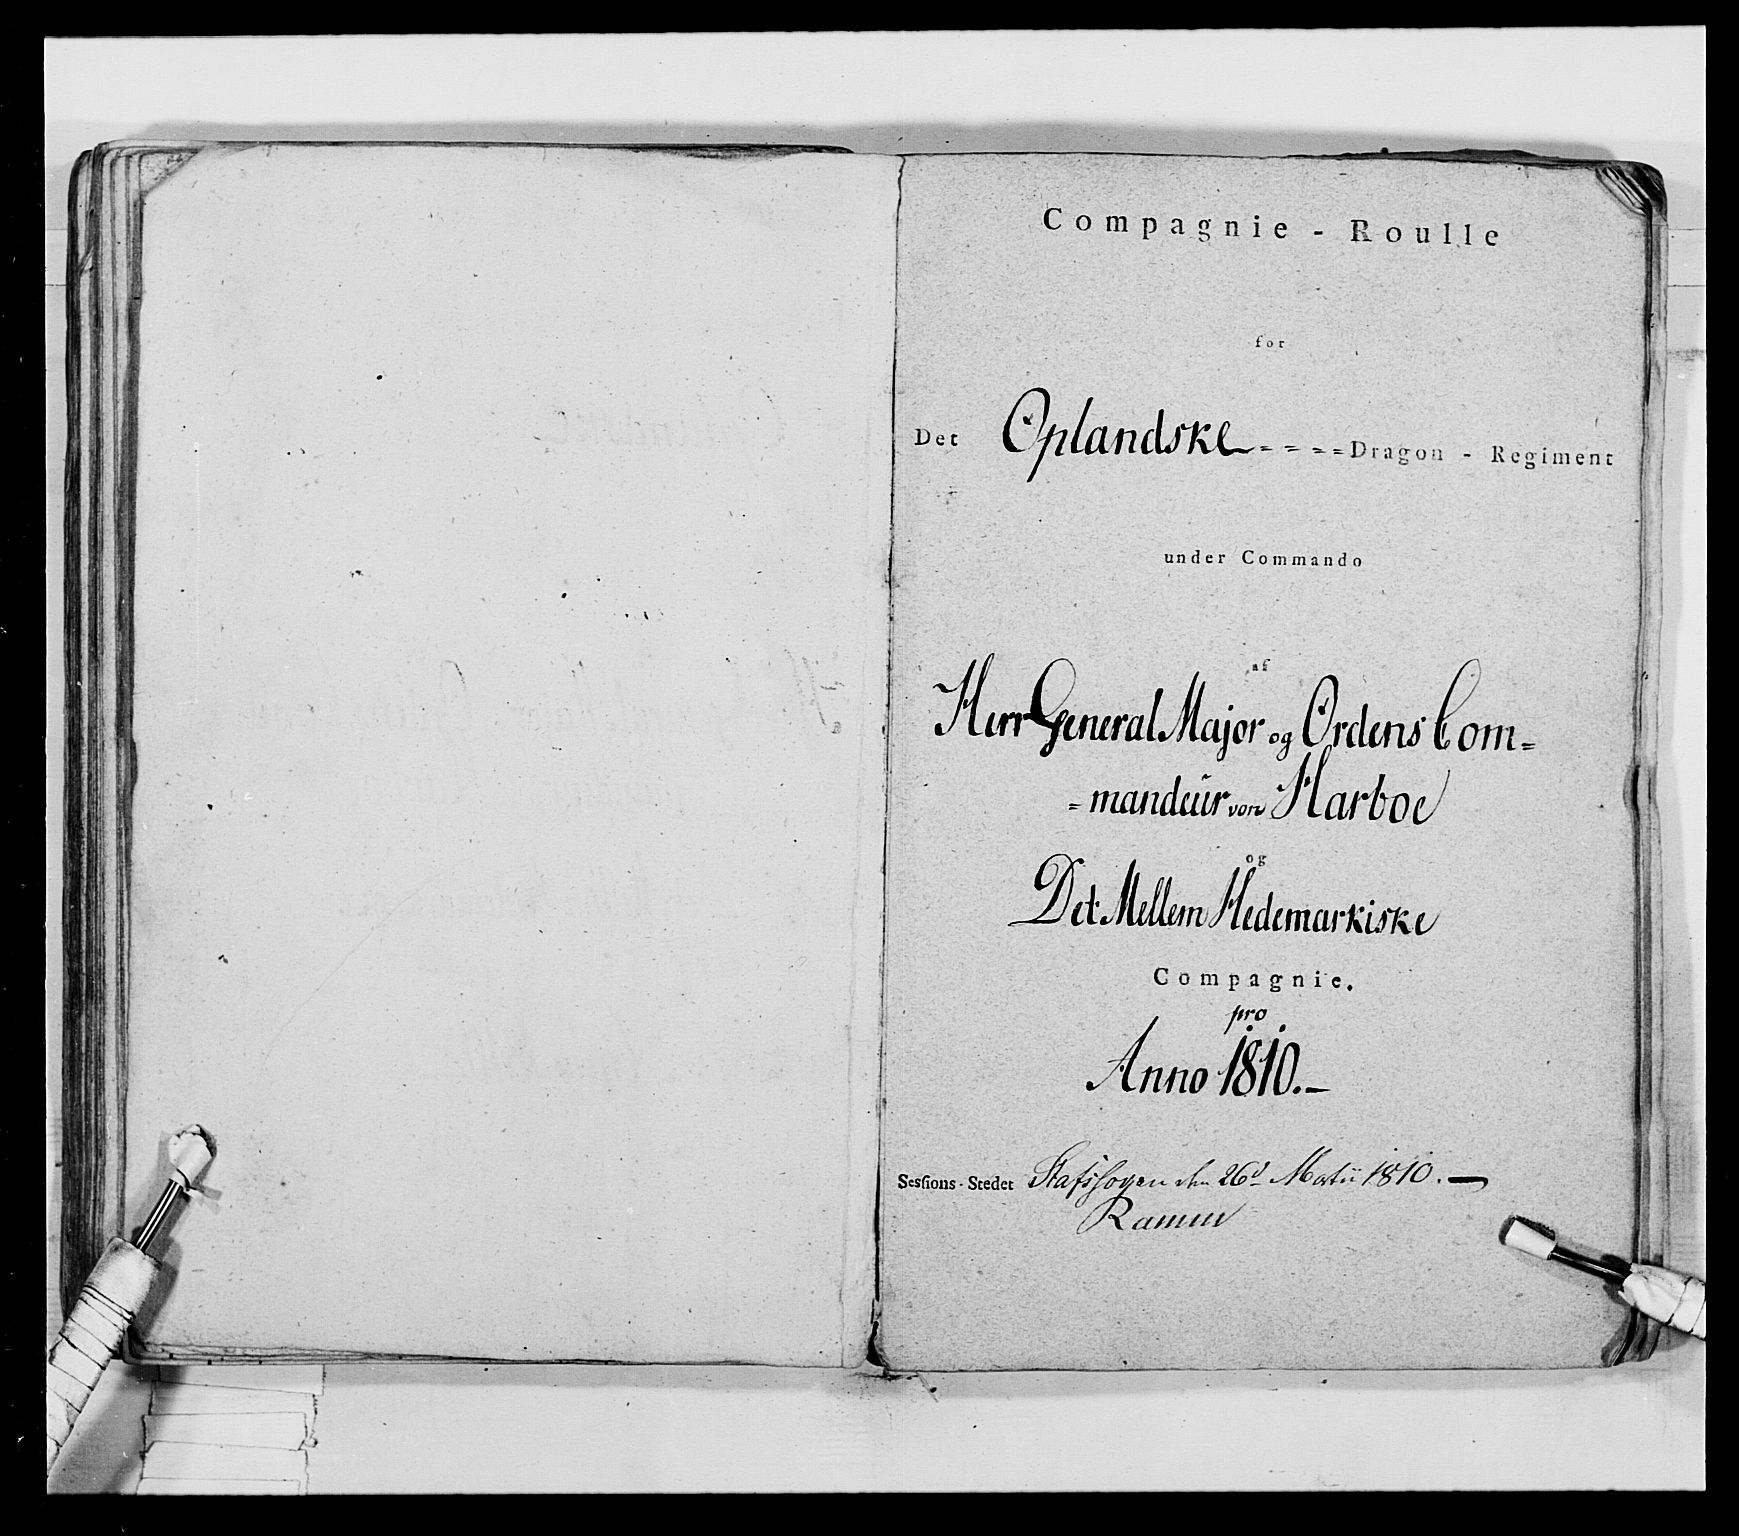 Compagnie - Roulle
for
Det Oplandske - - - - Dragon - Regiment
under Commando
af
Herr General Major og Ordens Com=
=mandeur von Harboe
og
Det Mellem Hedemarkiske
Compagnie.
pro
Anno 1810.—
Sessions-Stedet den 26d 1810. —
Ramm